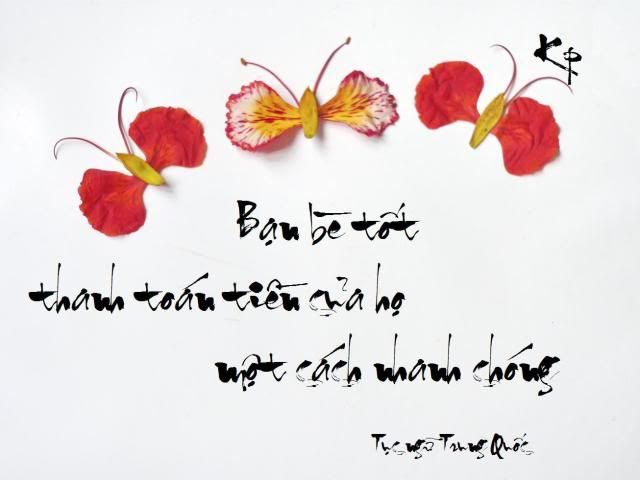 Kp
Bạn bè tốt
thanh toán tiền của họ
một cách nhanh chóng
Tục ngữ Trung Quốc